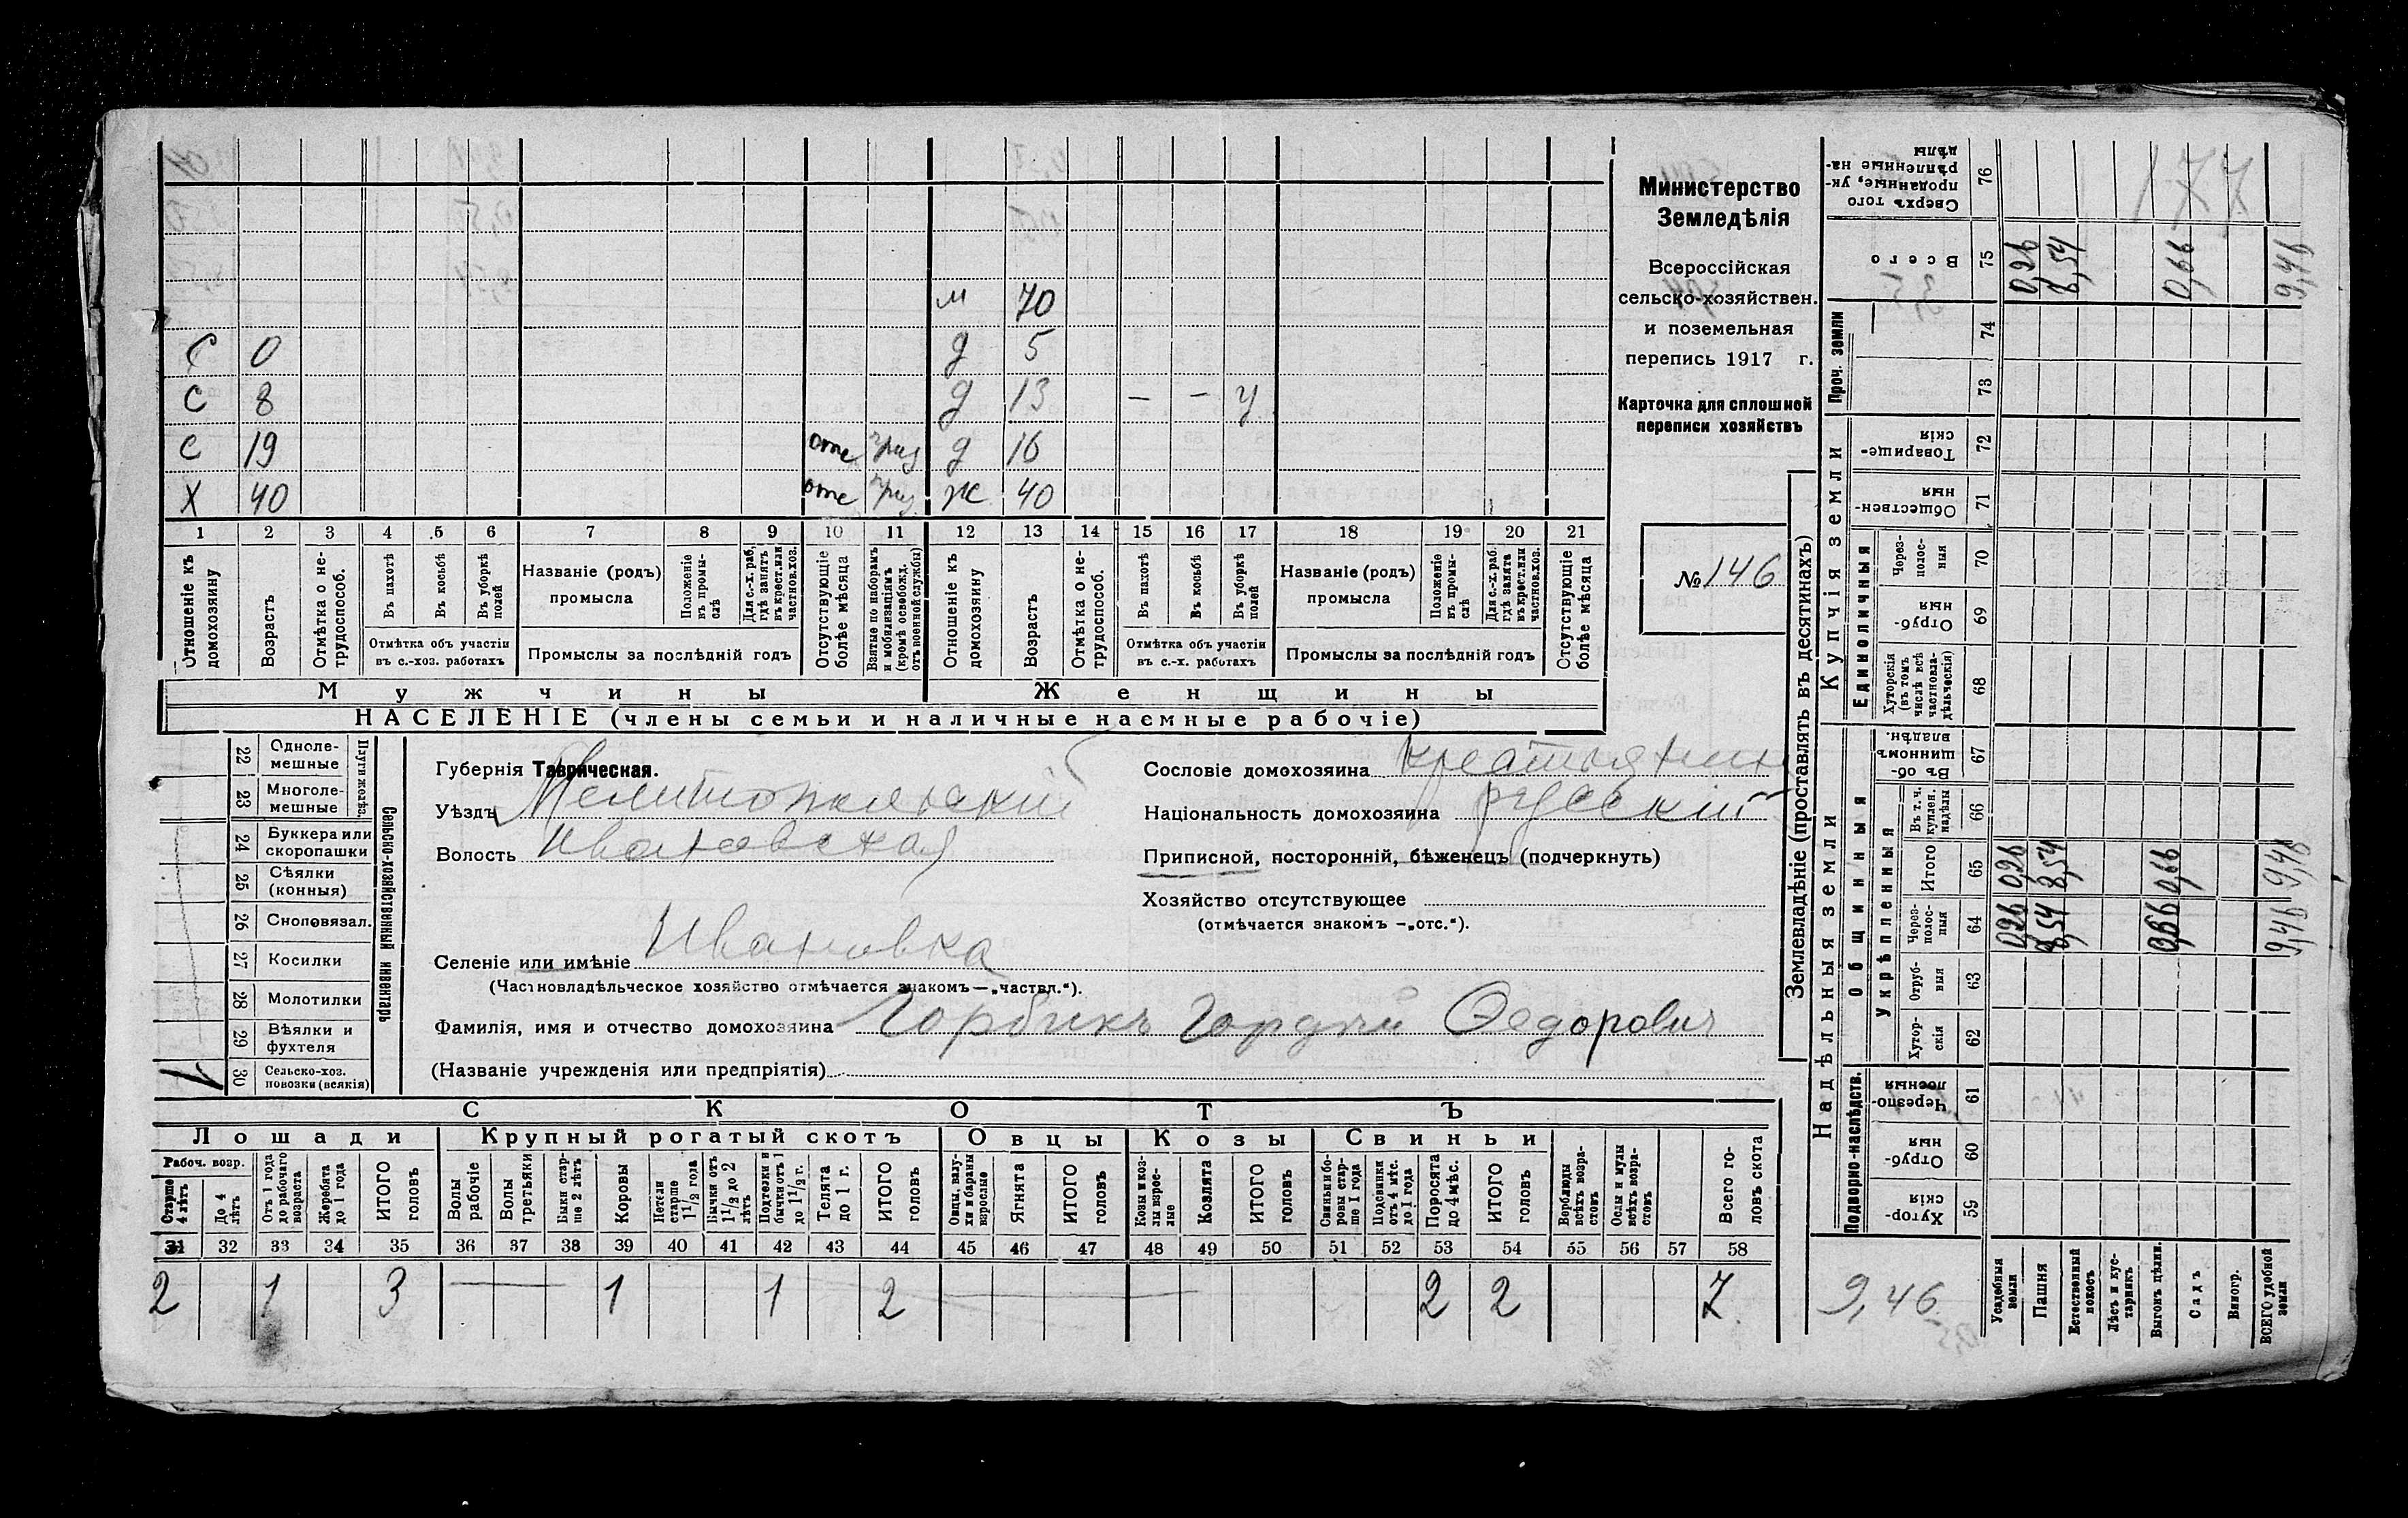 м 70
С 0 д 5
С 8 д 13 — — у
С 19 отс приз д 16
Х 40 отс приз ж 40
1 2 3 4 5 6 7 8 9 10 11 12 13 14 15 16 17 18 19 20 21
Отношеніе къ домохозяину
Возрастъ
Отмѣтка о не-трудоспособ.
Въ пахотѣ
Въ косьбѣ
Въ уборкѣ полей
Отмѣтка объ участіи
въ с.-хоз. работахъ
Названіе (родъ)
промысла
Положеніе въ промы-слѣ
Для с.-х. раб. гдѣ занятъ въ крест. или частнов. хоз.
Промыслы за послѣдній годъ
Отсутствующіе болѣе мѣсяца
Взятые по наборамъ и мобилизаціямъ (кромѣ освобожд. отъ военной службы)
Отношеніе къ домохозяину
Возрастъ
Отмѣтка о не-трудоспособ.
Въ пахотѣ
Въ косьбѣ
Въ уборкѣ полей
Отмѣтка объ участіи
въ с.-х. работахъ
Названіе (родъ)
промысла
Положеніе въ промы-слѣ
Для с.-х. раб. гдѣ занята въ крест. или частнов. хоз.
Промыслы за послѣдній годъ
Отсутствующіе болѣе мѣсяца
Мужчины Женщины
НАСЕЛЕНІЕ (члены семьи и наличные наемные рабочіе)
Министерство
Земледѣлія
Всероссійская
сельско-хозяйствен.
и поземельная
перепись 1917 г.
Карточка для сплошной
переписи хозяйствъ
№ 146
22 Одноле-мешные
23 Многоле-мешные
Плуги желѣз.
24 Буккера или скоропашки
25 Сѣялки (конныя)
26 Сноповязал.
27 Косилки
28 Молотилки
29 Вѣялки и фухтеля
30 Сельско-хоз. повозки (всякія) 1
Сельско-хозяйственный инвентарь
Губернія Таврическая.
Уѣздъ Мелитопольскій
Волость Ивановская
Сословіе домохозяина крестьянин
Національность домохозяина русскій
Приписной, посторонній, бѣженецъ (подчеркнуть)
Хозяйство отсутствующее
(отмѣчается знакомъ —„отс.“).
Селеніе или имѣніе Ивановка
(Частновладѣльческое хозяйство отмѣчается знакомъ—„частвл.“).
Фамилія, имя и отчество домохозяина Горбикъ Гордѣй Федорович
(Названіе учрежденія или предпріятія)
СКОТЪ
Лошади Крупный рогатый скотъ Овцы Козы Свиньи
Рабоч. возр.
Старше 4 лѣтъ
До 4 лѣтъ
Отъ 1 года до рабочаго возраста
Жеребята до 1 года
ИТОГО головъ
Волы рабочіе
Волы третьяки
Быки стар-ше 2 лѣтъ
Коровы
Нетели старше 1 1/2 года
Бычки отъ 1 1/2 до 2 лѣтъ
Подтелки и бычки отъ 1 до 1 1/2 г.
Телята до 1 г.
ИТОГО головъ
Овцы, валу-хи и бараны взрослые
Ягнята
ИТОГО головъ
Козы и коз-лы взрос-лые
Козлята
ИТОГО головъ
Свиньи и бо-ровы стар-ше 1 года
Подсвинки отъ 4 мѣс. до 1 года
Поросята до 4 мѣс.
ИТОГО головъ
Верблюды всѣхъ возра-стовъ
Ослы и мулы всѣхъ возра-стовъ
Всего го-ловъ скота
31 32 33 34 35 36 37 38 39 40 41 42 43 44 45 46 47 48 49 50 51 52 53 54 55 56 57 58
2 1 3 — 1 1 2 — 2 2 7
Землевладѣніе (проставлять въ десятинахъ)
Надѣльныя земли Купчія земли Проч. земли
Подворно-наслѣдств.
Общинныя
Укрѣпленныя
Единоличныя
Сверхъ того проданные, ук-рѣпленные на-дѣлы 76 177
Всего 75 0,26 8,54 0,66 9,46
74
73
Товарище-скія 72
Обществен-ныя 71
Через-полос-ныя 70
Отруб-ныя 69
Хуторскія (въ томъ числѣ всѣ частновла-дѣльческія) 68
Въ об-щинномъ владѣн. 67
Въ т. ч. куплен. надѣлы 66
Итого 65 0,26 8,54 0,66 9,46
Через-полос-ныя 64 0,26 8,54 0,66 9,46
Отруб-ныя 63
Хутор-скія 62
Черезпо-лосныя 61
Отруб-ныя 60
Хутор-скія 59
9,46
Усадебныя земли
Пашня
Естественный покосъ
Лѣсъ и кус-тарникъ
Выгонъ цѣлин.
Садъ
Виногр.
ВСЕГО удобной земли